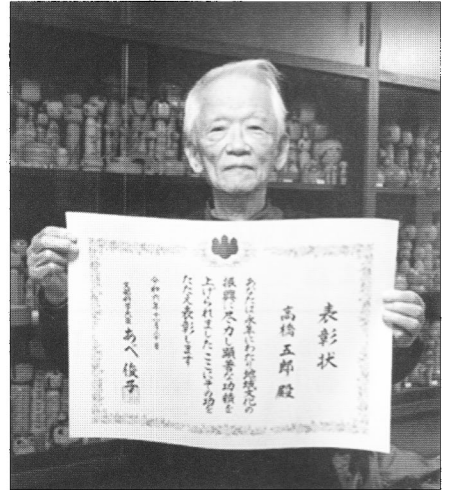 表彰状
高橋五郎 殿
あなたは永年にわたり地域文化の
振興に尽力し顕著な功績を
上げられましたここにその功を
たたえ表彰します
文部科学大臣 あべ 俊子